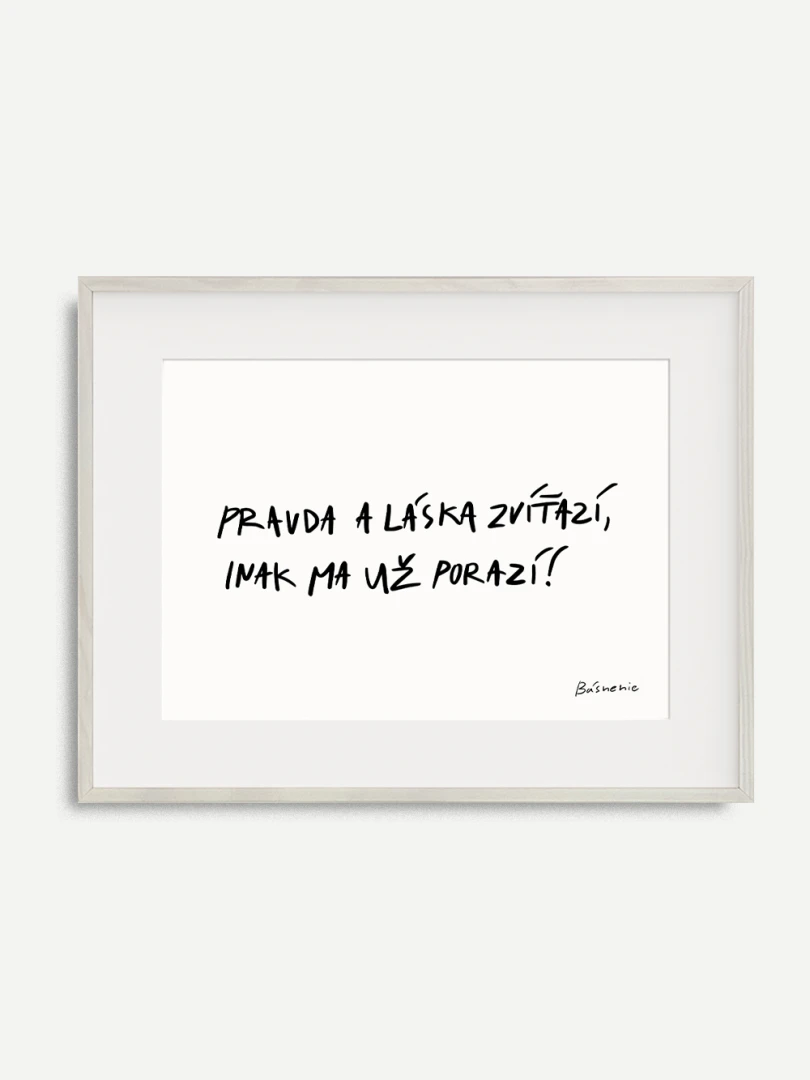 PRAVDA A LÁSKA ZVÍŤAZÍ,
INAK MA UŽ PORAZÍ!
Básnenie